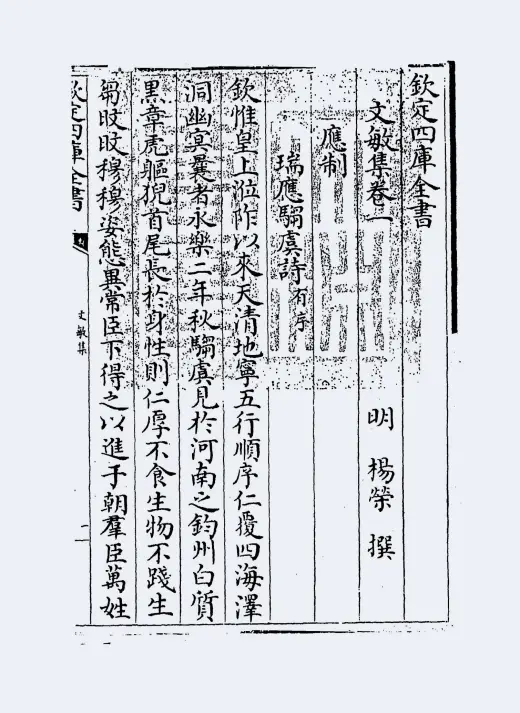 欽定四庫全書
文敏集卷一
明 楊榮 撰
應制
瑞應騶虞詩有序
欽惟皇上涖祚以來天清地寧五行順序仁覆四海澤
洞幽冥曩者永樂二年秋騶虞見於河南之鈞州白質
黑章虎軀猊首尾長於身性則仁厚不食生物不踐生
芻旼旼穆穆姿態異常臣下得之以進于朝羣臣萬姓
欽定四庫全書
文敏集
一